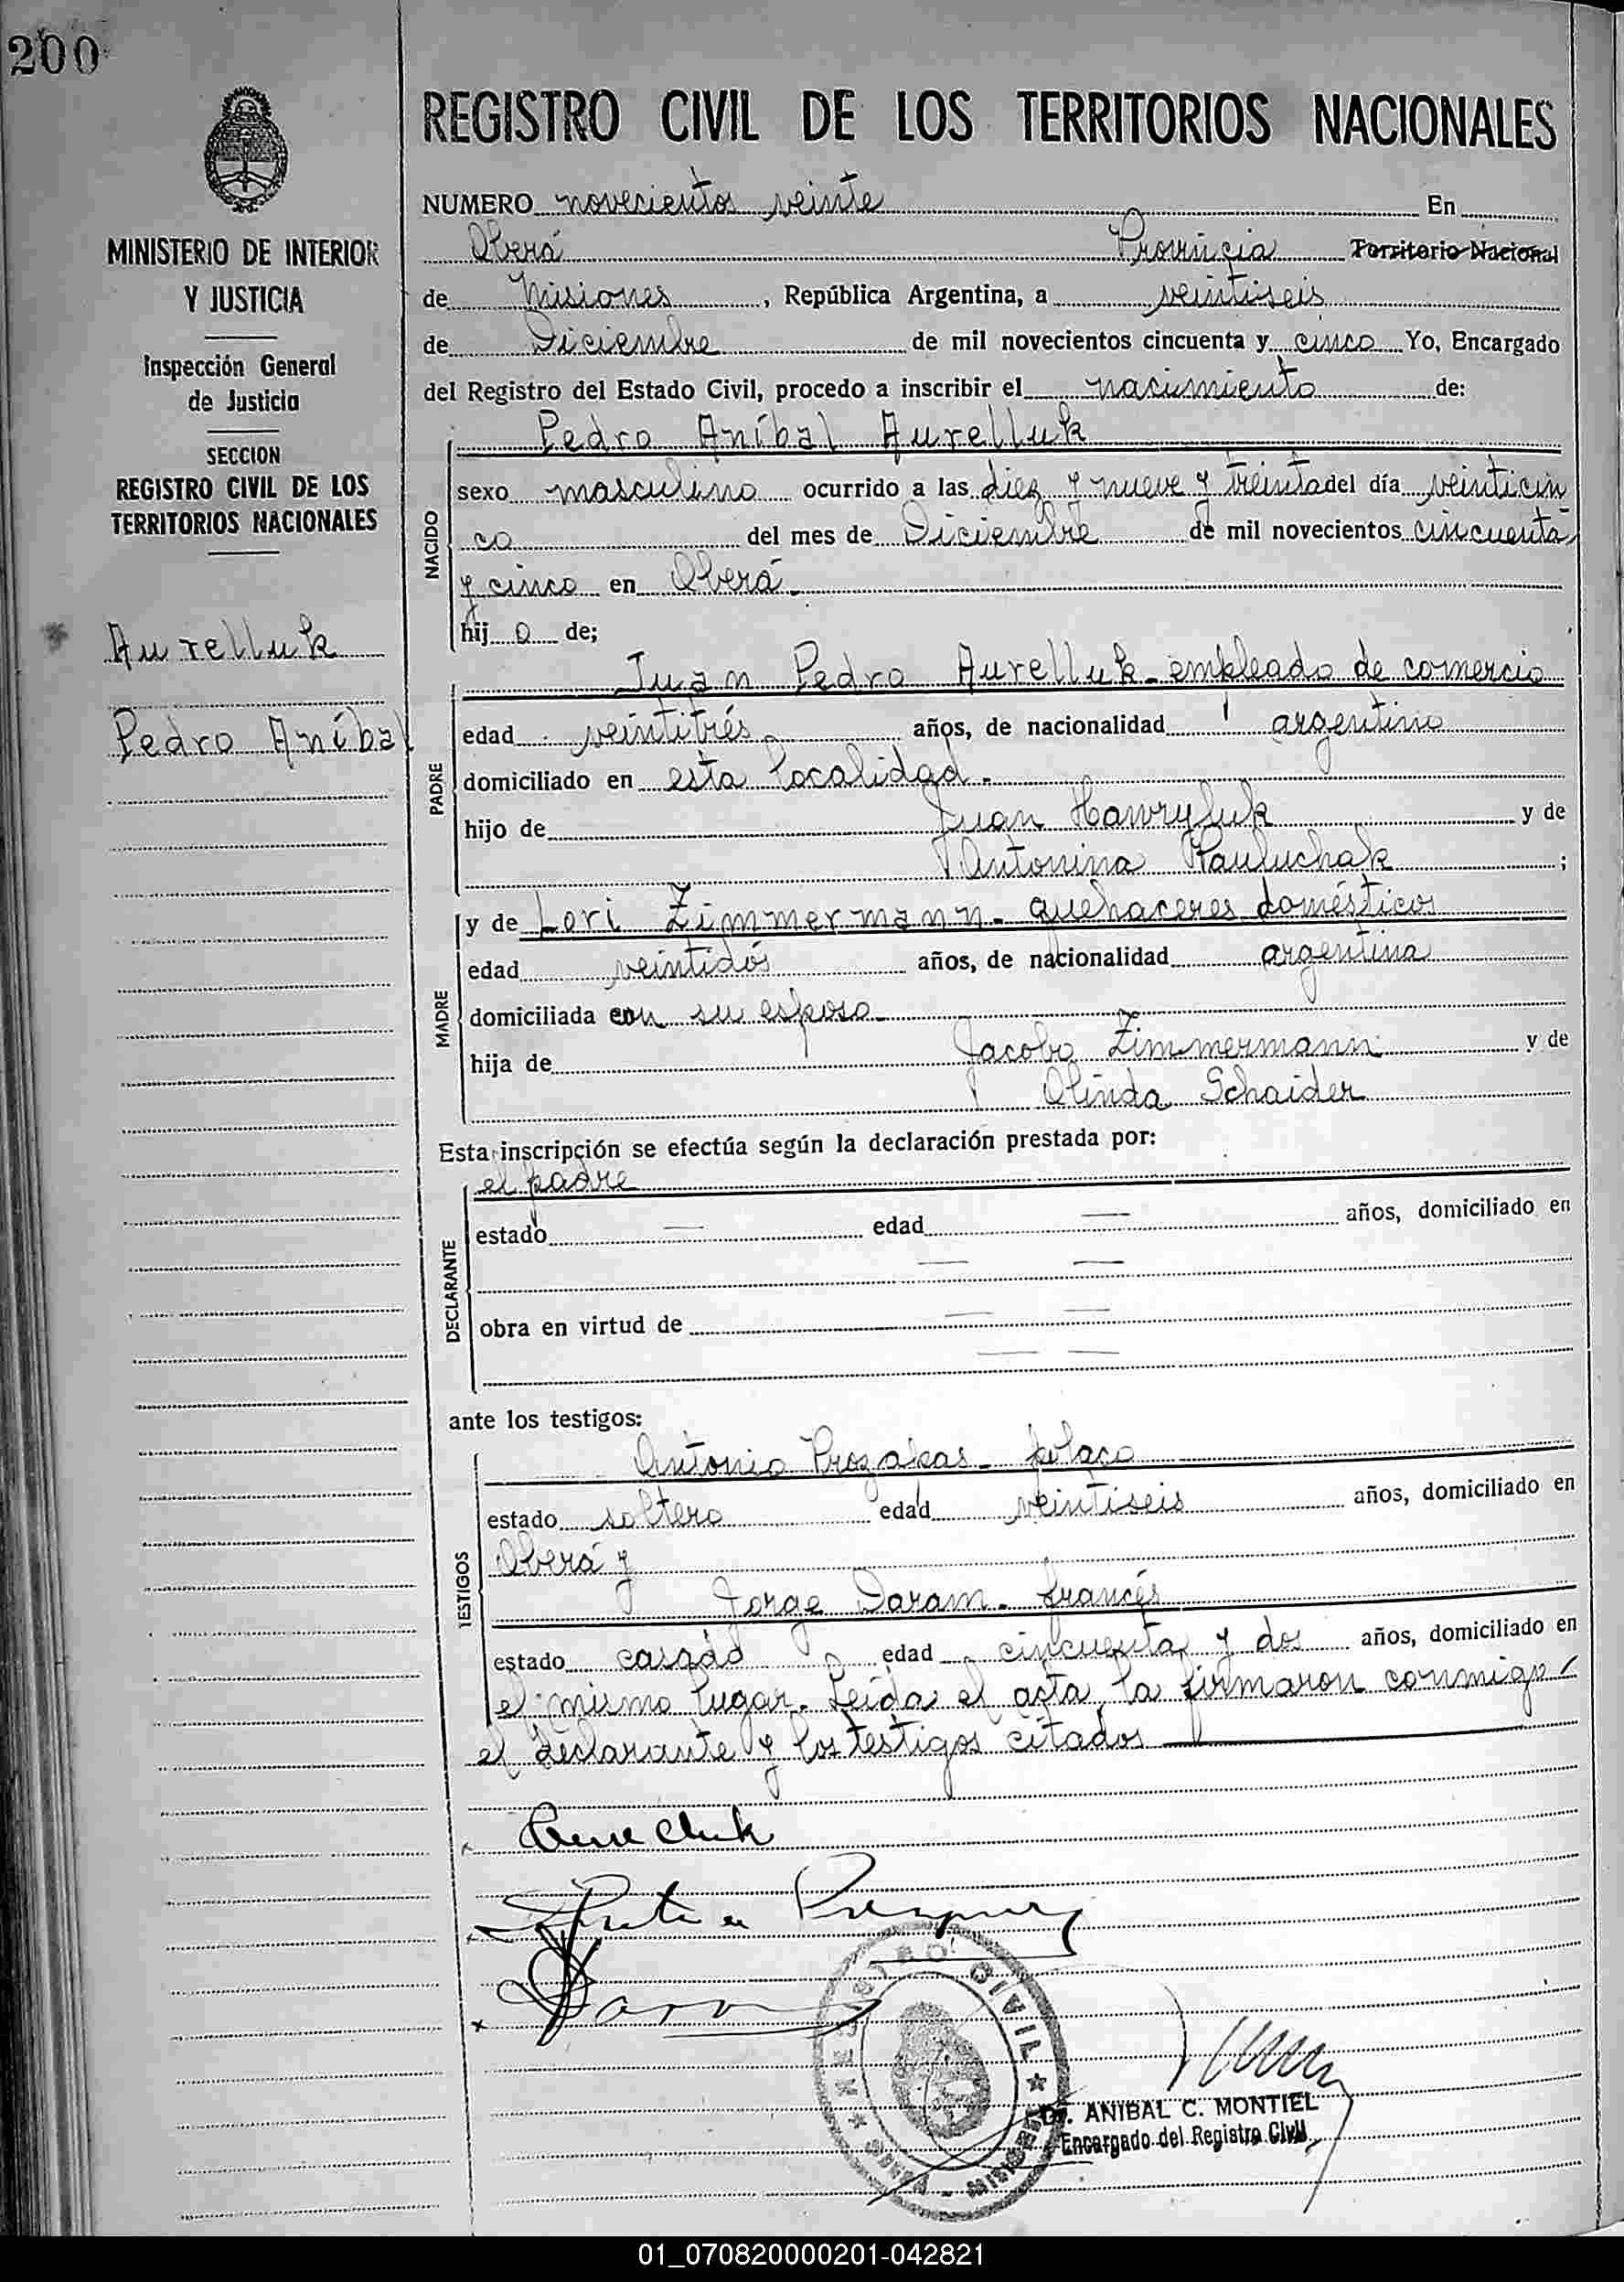 200
REGISTRO CIVIL DE LOS TERRITORIOS NACIONALES
MINISTERIO DE INTERIOR
Y JUSTICIA
Inspección General
de Justicia
SECCION
REGISTRO CIVIL DE LOS
TERRITORIOS NACIONALES
Aurelluk
Pedro Aníbal
NUMERO novecientos veinte En
Oberá Provincia Territorio Nacional
de Misiones, República Argentina, a veintiseis
de Diciembre de mil novecientos cincuenta y cinco Yo, Encargado
del Registro del Estado Civil, procedo a inscribir el nacimiento de:
Pedro Aníbal Aurelluk
NACIDO
sexo masculino ocurrido a las diez y nueve y treinta del día veinticin
co del mes de Diciembre de mil novecientos cincuenta
y cinco en Oberá.
hijo de;
Juan Pedro Aurelluk - empleado de comercio
PADRE
edad veintitrés años, de nacionalidad argentino
domiciliado en esta localidad.
hijo de Juan Hawryluk y de
Antonina Pauluchak ;
y de Lori Zimmermann - quehaceres domésticos
MADRE
edad veintidós años, de nacionalidad argentina
domiciliada con su esposo
hija de Jacobo Zimmermann y de
Olinda Schaider
Esta inscripción se efectúa según la declaración prestada por:
el padre
DECLARANTE
estado — edad — años, domiciliado en
— —
obra en virtud de — —
— —
ante los testigos:
Antonio Prozakas - polaco
TESTIGOS
estado soltero edad veintiseis años, domiciliado en
Oberá y
Jorge Daram - francés
estado casado edad cincuenta y dos años, domiciliado en
el mismo lugar. Leída el acta, la firmaron conmigo
el declarante y los testigos citados
REGISTRO CIVIL
MISIONES
Dr. ANIBAL C. MONTIEL
Encargado del Registro Civil
01_070820000201-042821